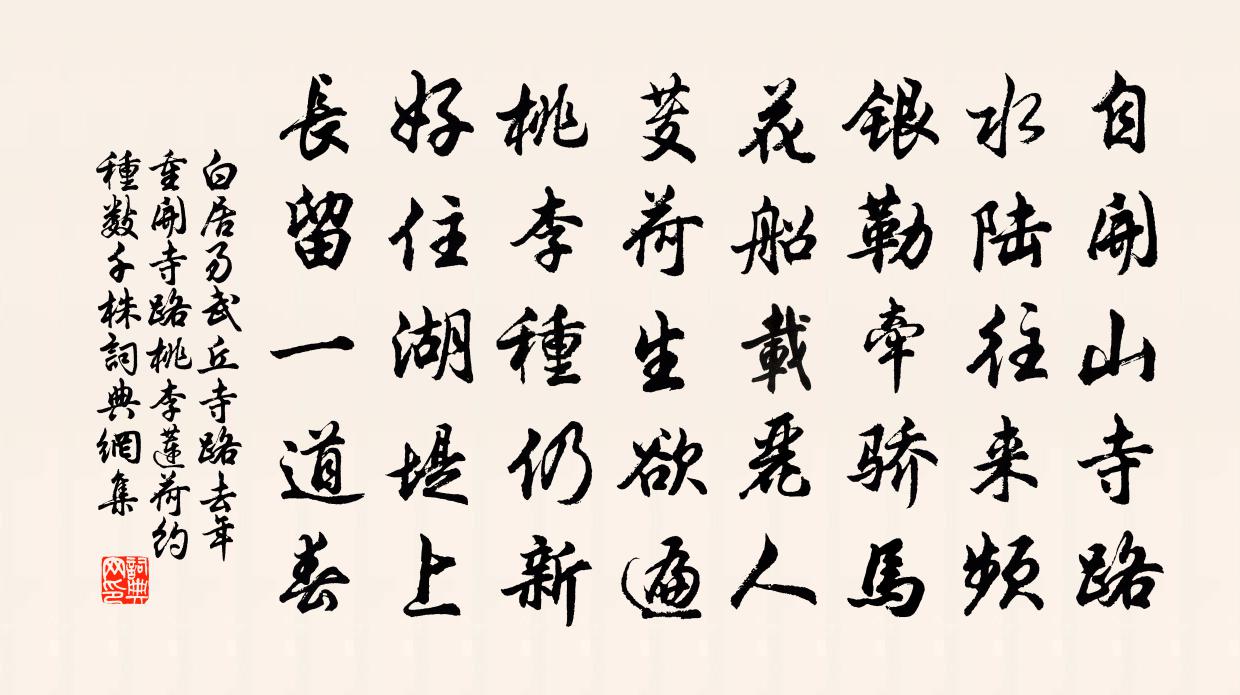 自開山寺路
水陸往来頻
銀勒牽骄馬
花船載麗人
芰荷生欲遍
桃李種仍新
好住湖堤上
長留一道春
白居易武丘寺路去年
重開寺路桃李蓮荷約
種數千株詞典網集
詞典网印